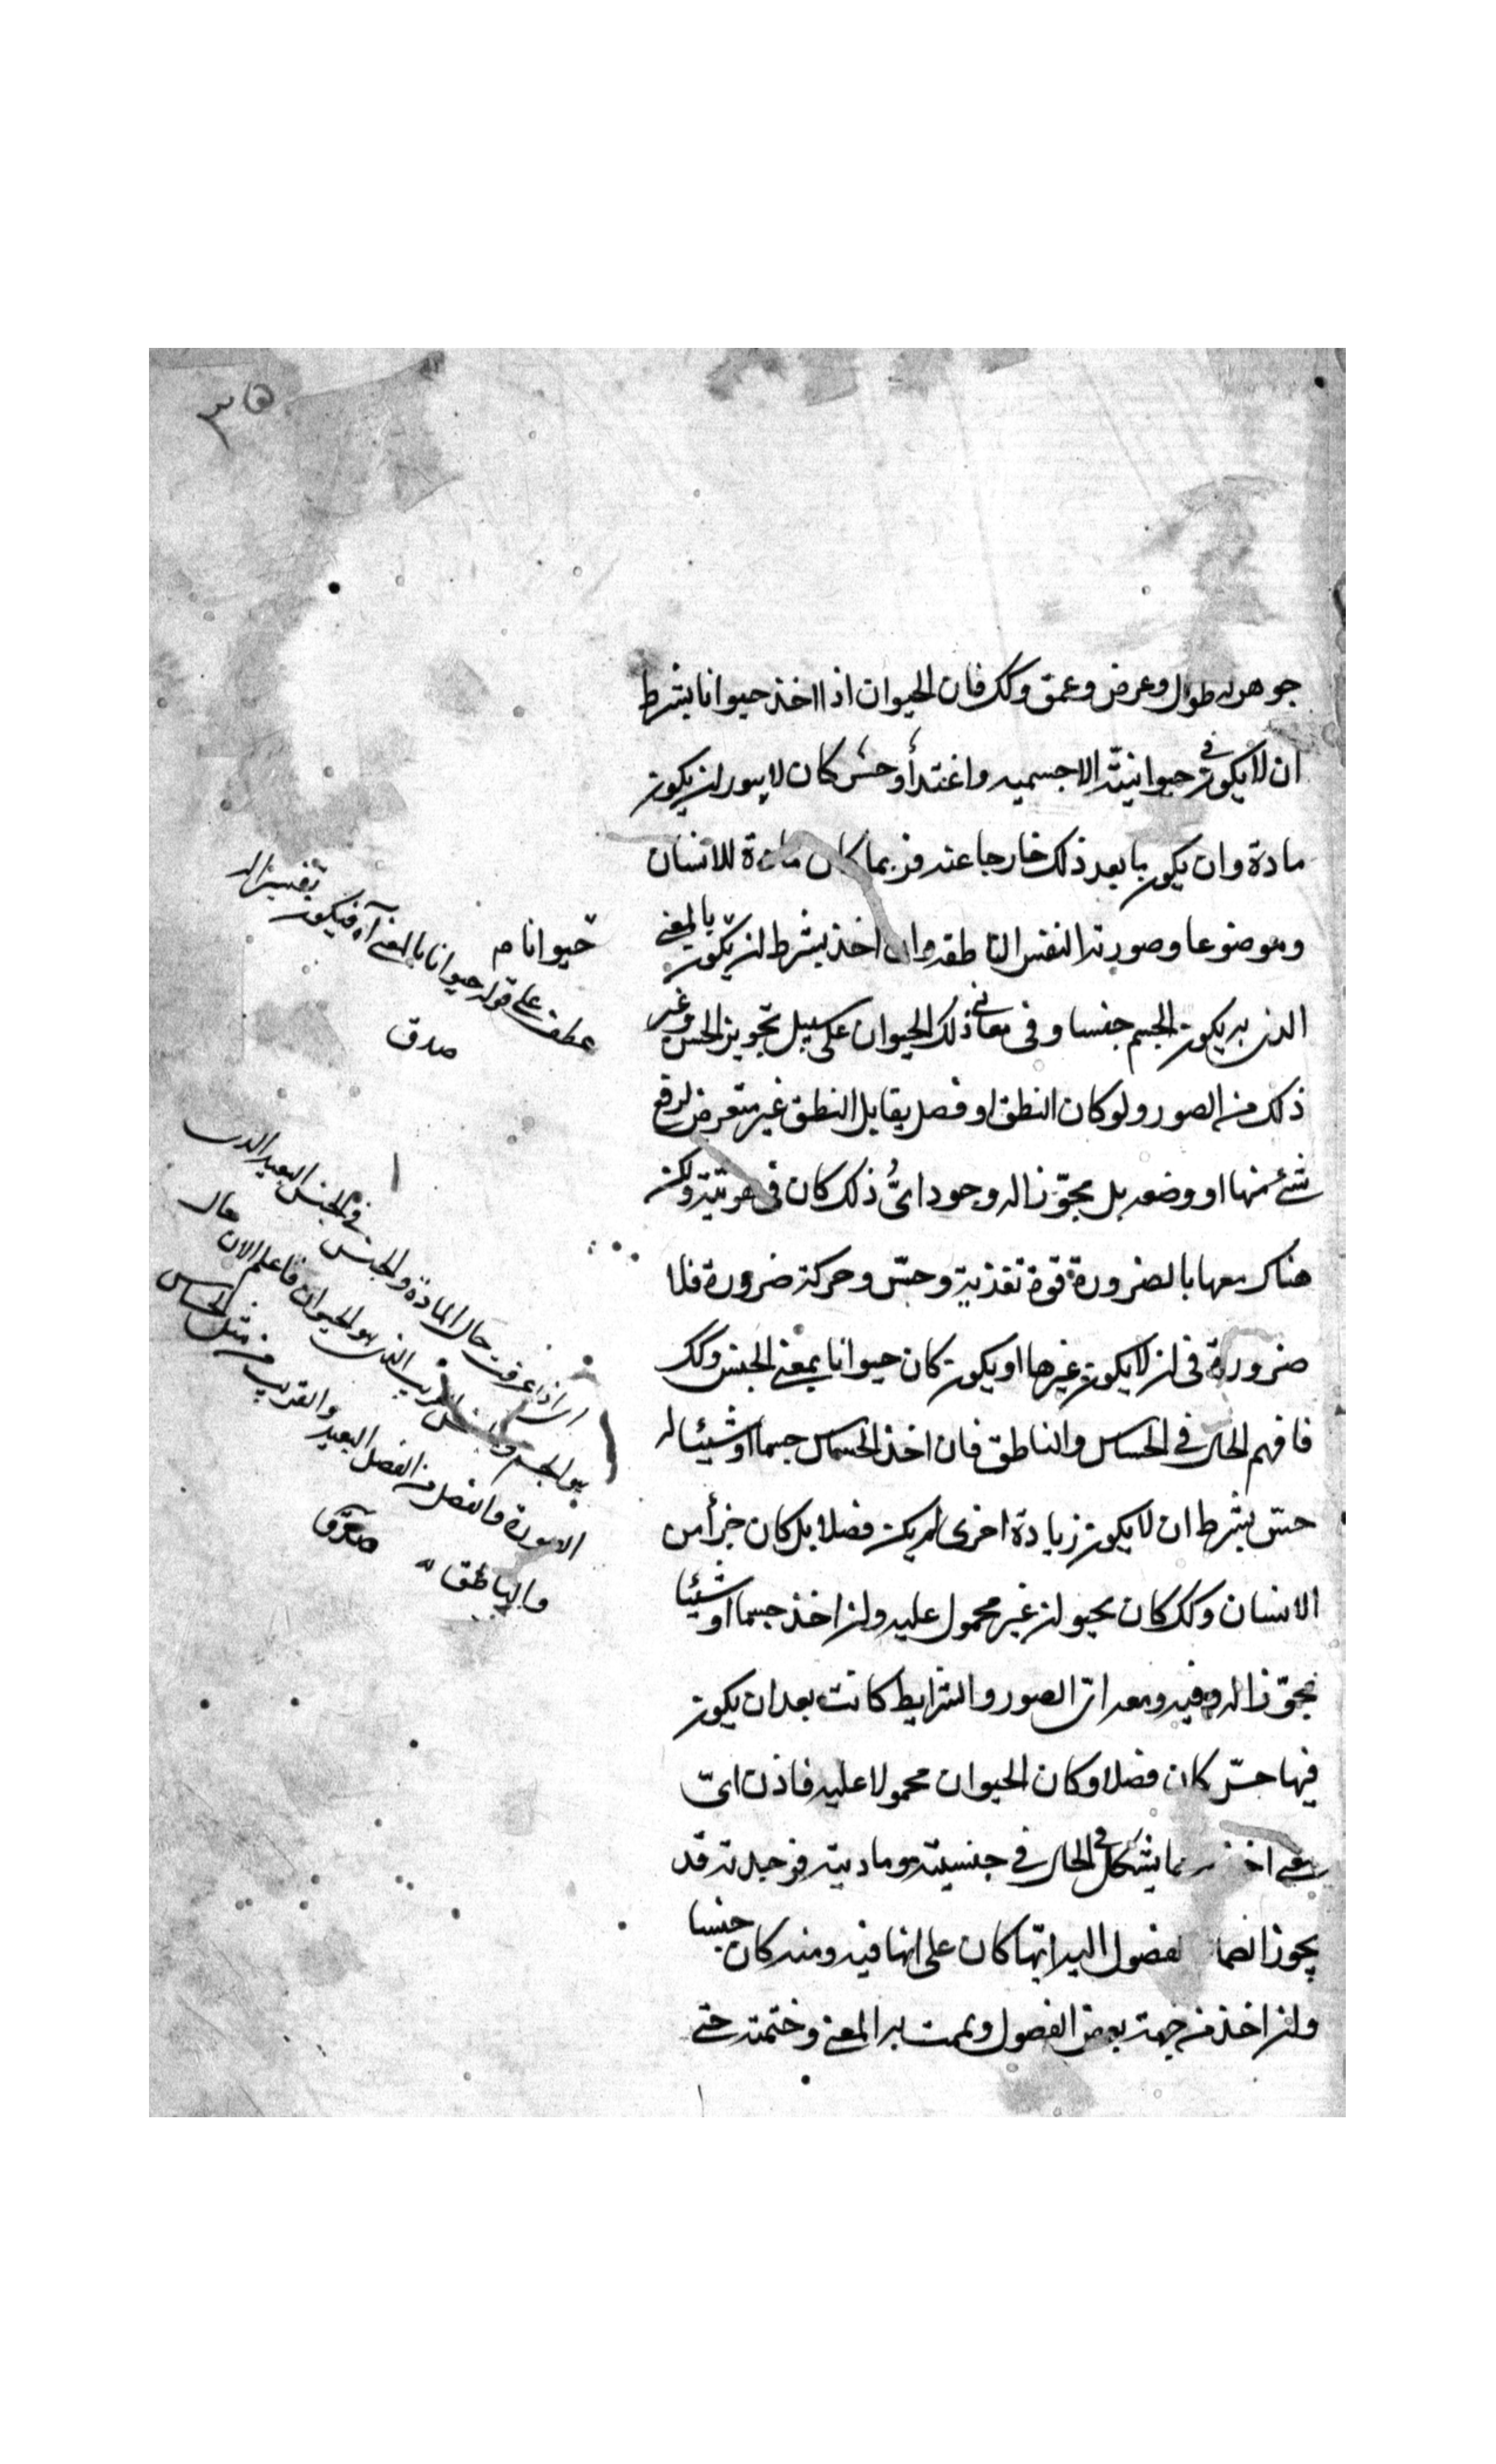 ٣٥
جوهر له طول وعرض وعمق وكك فان الحيوان اذا اخذ حيوانا بشرط
ان لا يكون في حيوانيته الا جسميه واغتذأ وحس كان لا يبعد ان يكون
مادة وان يكون ما بعد ذلك خارجا عنه فربما كان مادة للانسان
وموضوعا وصورته النفس الناطقه وان اخذ بشرط ان يكون بالمعنى
الذى به يكون الجسم جنسا وفى معانى ذلك الحيوان على سبيل تجويز الحس وغير
ذلك من الصور ولو كان النطق او فصل يقابل النطق غير متعرض لرفع
شئ منها او وضعه بل مجوّزا له وجود اىُّ ذلك كان فى هويته ولكن
هناك معها بالضرورة قوة تغذية وحسّ وحركة ضرورة فلا
ضرورة فى ان لا يكون غيرها او يكون كان حيوانا بمعنى الجنس وكك
فافهم الحال فى الحساس والناطق فان اخذ الحساس جسما او شيئا له
حسّ بشرط ان لا يكون زيادة اخرى لم يكن فصلا بل كان جزأ من
الانسان وكك كان الحيوان غير محمول عليه وان اخذ جسما او شيئا
مجوّزا له وفيه ومعه اىّ الصور والشرايط كانت بعد ان يكون
فيها حسّ كان فصلا وكان الحيوان محمولا عليه فاذن اىّ
معنى اخذ مما يشكل الحال فى جنسيته وماديته فوجدته قد
يجوز انضما الفصول اليه ايّها كان على انها فيه ومنه كان جنسا
وان اخذ من جهة بعض الفصول وتممت به المعنى وختمته حتى
حيوانا م
عطف على قوله حيوانا بالمعنى آه فيكون تفسيرا له
صدق
اى اذا عرفت حال المادة والجنس فى الجنس البعيد الذى
هو الجسم والجنس القريب الذى هو الحيوان فاعلم الان حال
الصورة والفصل من الفصل البعيد والقريب من مثل الحساس
والناطق
صدق